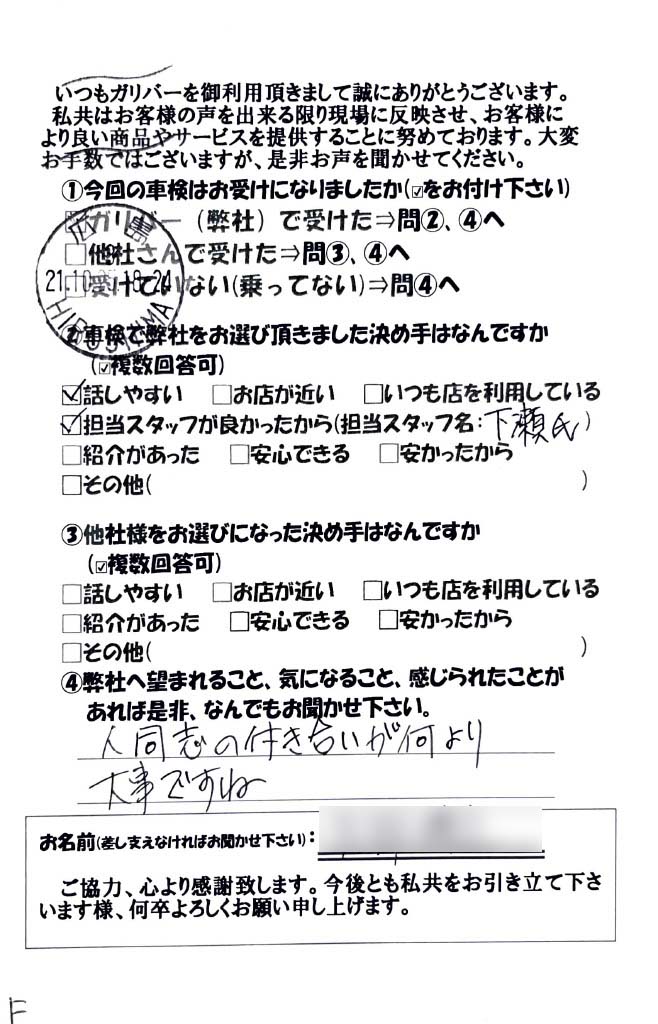 いつもガリバーを御利用頂きまして誠にありがとうございます。
私共はお客様の声を出来る限り現場に反映させ、お客様に
より良い商品やサービスを提供することに努めております。大変
お手数ではございますが、是非お声を聞かせてください。
①今回の車検はお受けになりましたか(☑をお付け下さい)
☑ガリバー(弊社)で受けた⇒問②、④へ
□他社さんで受けた⇒問③、④へ
□受けていない(乗ってない)⇒問④へ
広島
21.10
18-24
HIROSHIMA
②車検で弊社をお選び頂きました決め手はなんですか
(☑複数回答可)
☑話しやすい □お店が近い □いつも店を利用している
☑担当スタッフが良かったから(担当スタッフ名:下瀬氏)
□紹介があった □安心できる □安かったから
□その他( )
③他社様をお選びになった決め手はなんですか
(☑複数回答可)
□話しやすい □お店が近い □いつも店を利用している
□紹介があった □安心できる □安かったから
□その他( )
④弊社へ望まれること、気になること、感じられたことが
あれば是非、なんでもお聞かせ下さい。
人同志の付き合いが何より
大事ですね
お名前(差し支えなければお聞かせ下さい):
ご協力、心より感謝致します。今後とも私共をお引き立て下さ
います様、何卒よろしくお願い申し上げます。